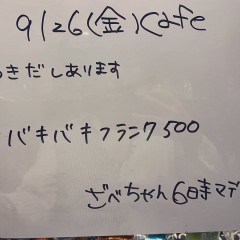 9/26(金)Cafe
きだしあります
バキバキフランク500
ざべちゃん6日寺マデ